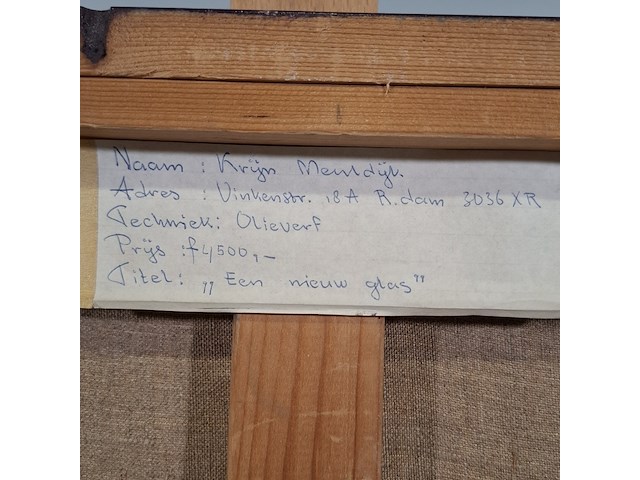 Naam : Krijn Meuldijk.
Adres : Vinkenstr. 18A R.dam 3036 XR
Techniek: Olieverf
Prijs : f 4500,-
Titel: „Een nieuw glas"